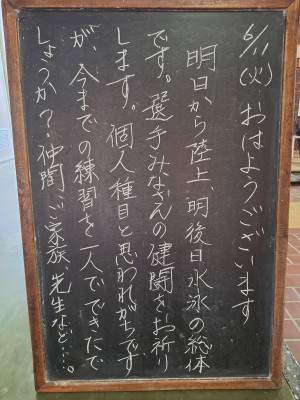 6/11(火)おはようございます
明日から陸上、明後日水泳の総体
です。選手みなさんの健闘をお祈り
します。個人種目と思われがちです
が、今までの練習を一人でできたで
しょうか?仲間、ご家族、先生など…。